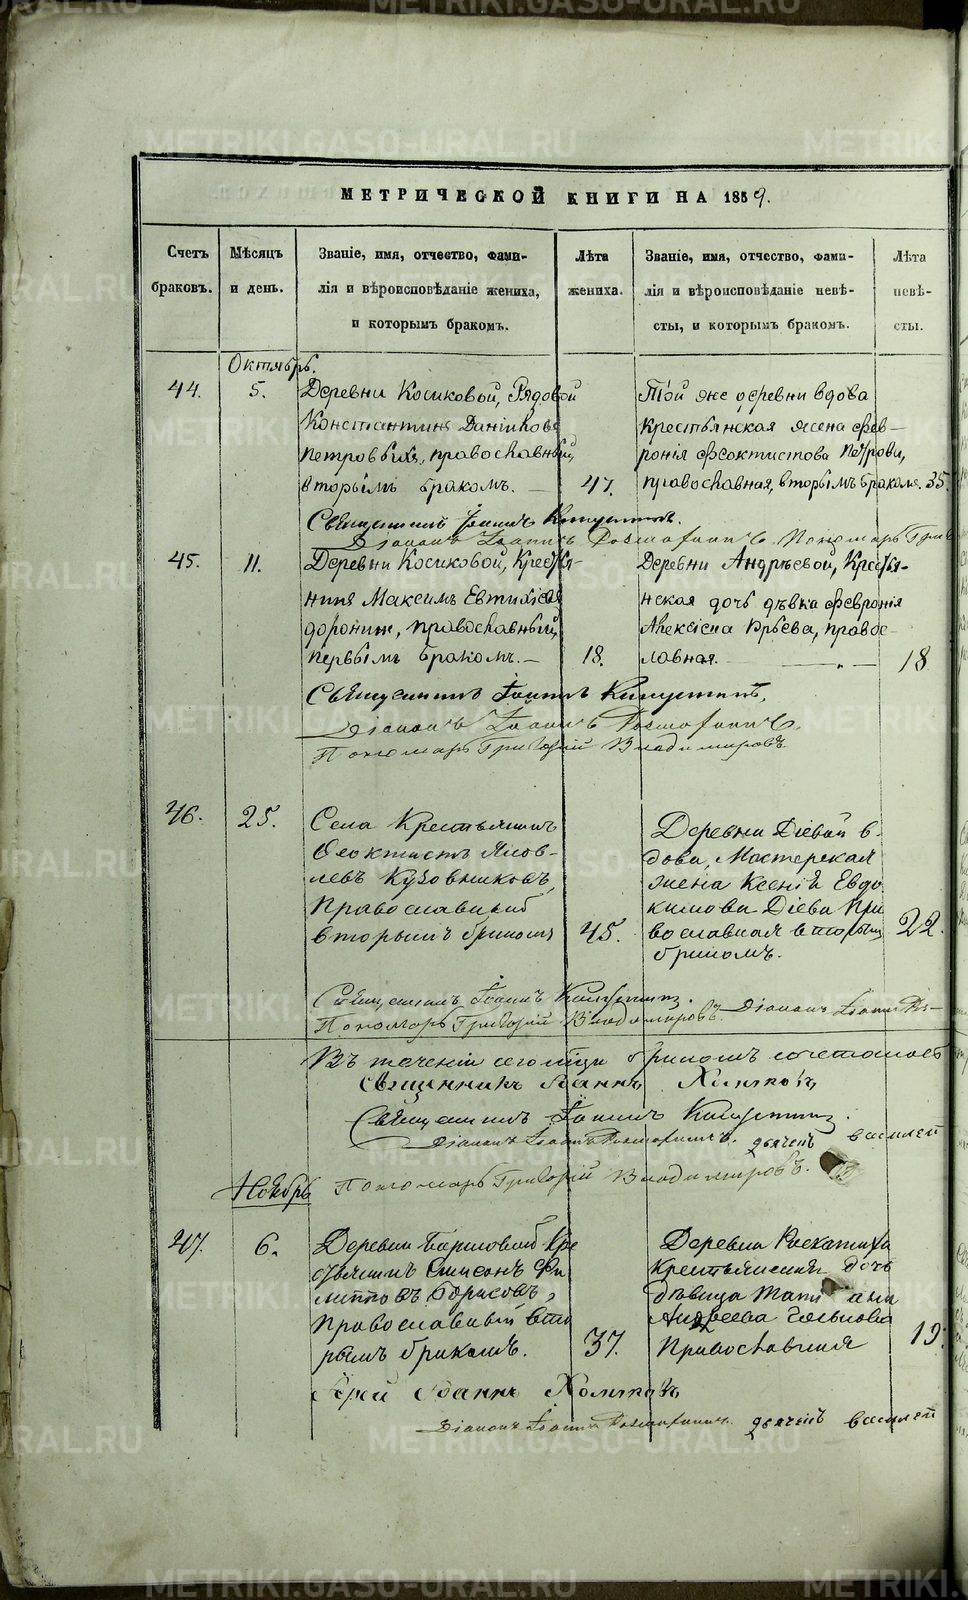 METRIKI.GASO-URAL.RU
МЕТРИЧЕСКОЙ КНИГИ НА 1859.
Счетъ браковъ.
Мѣсяцъ и день.
Званіе, имя, отчество, фами-
лія и вѣроисповѣданіе жениха,
и которымъ бракомъ.
Лѣта жениха.
Званіе, имя, отчество, фами-
лія и вѣроисповѣданіе невѣ-
сты, и которымъ бракомъ.
Лѣта невѣ-
сты.
Октябрь.
44. 5. Деревни Косиковой, Рядовой
Константинъ Даниловъ
Петровыхъ, православный,
вторымъ бракомъ. — 47.
Той же деревни вдова
Крестьянская жена Фев-
ронія Феоктистова Петрова,
православная, вторымъ бракомъ. 35.
Священникъ Іоаннъ
Діаконъ Іоаннъ Пономарь Григ
45. 11. Деревни Косиковой, Крестья-
нинъ Максимъ Евтихіевъ
Доронинъ, православный,
первымъ бракомъ. — 18.
Деревни Андрѣевой, Крестья-
нская дочь дѣвка Февронія
Алексіева Юрьева, правос-
лавная. — „ — 18
Священникъ Іоаннъ
Діаконъ Іоаннъ
Пономарь Григорій Владимировъ.
46. 25. Села Крестьянинъ
Феоктистъ Яков-
левъ Кузовниковъ,
Православный
вторымъ бракомъ 45.
Деревни Діевой в-
дова, Мастерская
жена Ксенія Евдо
кимова Діева Пра
вославная вторымъ 22.
бракомъ.
Священникъ Іоаннъ
Пономарь Григорій Владимировъ. Діаконъ Іоаннъ
Въ теченіи сего мѣсяца бракомъ
Священникъ Іоаннъ
Священникъ Іоаннъ
Діаконъ Іоаннъ дьячекъ Василей
Ноябрь Пономарь Григорій Владимировъ.
47. 6. Деревни Борисовой Кре
стьянинъ Симеонъ Фи
липповъ Борисовъ,
Православный вто
рымъ бракомъ. 37.
Деревни
Крестьянская дочь
дѣвица Татіана
Андреева
Православная 19.
Іерей Іоаннъ
Діаконъ Іоаннъ дьячекъ Василей